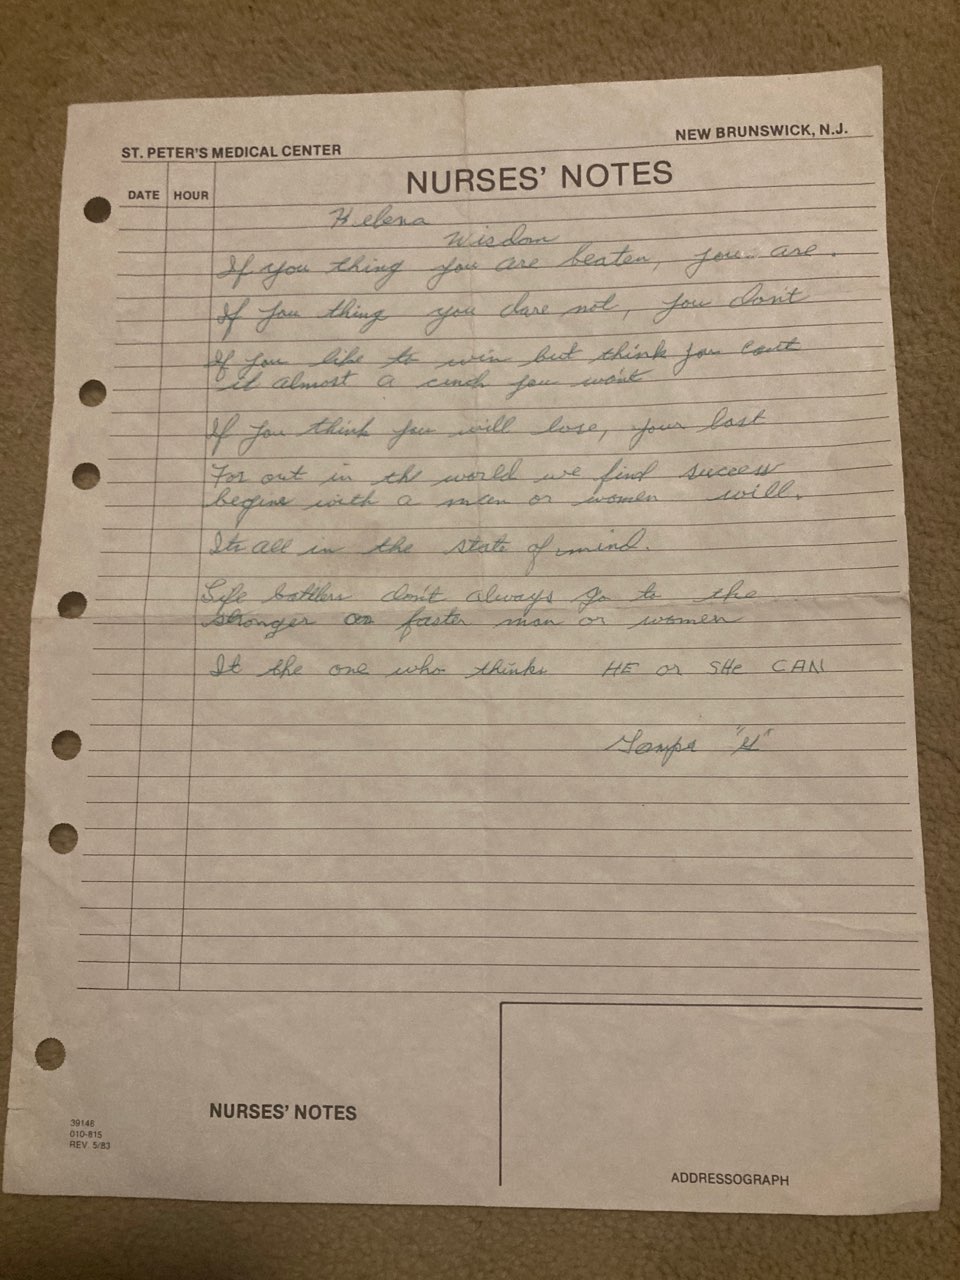 ST. PETER'S MEDICAL CENTER
NEW BRUNSWICK, N.J.
NURSES' NOTES
DATE HOUR
Helena
Wisdom
If you thing you are beaten, you are.
If you thing you dare not, you don't
If you like to win but think you can't
it almost a cinch you won't
If you think you will lose, your lost
For out in th world we find success
begins with a man or women will.
Its all in the state of mind.
Life battles don't always go to the
stronger or faster man or women
It the one who thinks HE or SHe CAN
"G"
NURSES' NOTES
39148
010-815
REV. 5/83
ADDRESSOGRAPH